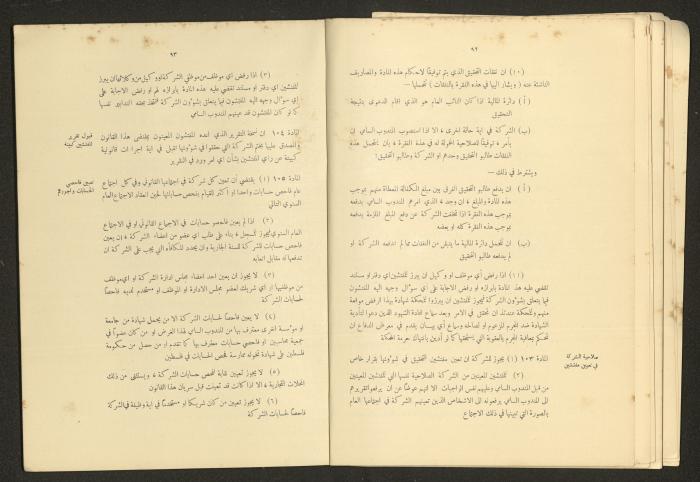 ٩٢
(١٠) ان نفقات التحقيق الذي يتم توفيقًا لاحكام هذه المادة والمصاريف
الناشئة عنه (ويشار اليها في هذه الفقرة بالنفقات) تتحملها –
(أ) دائرة المالية اذا كان النائب العام هو الذي اقام الدعوى نتيجة
التحقيق
(ب) الشركة في اية حالة اخرى ، الا اذا استصوب المندوب السامي ان
يأمر ، توفيقًا للصلاحية المخولة له في هذه الفقرة ، بان يتحمل هذه
النفقات طالبو التحقيق وحدهم او الشركة وطالبو التحقيق:
ويشترط في ذلك –
(أ) ان يدفع طالبو التحقيق الفرق بين مبلغ الكفالة المعطاة منهم بموجب
هذه المادة والمبلغ ، ان وجد ، الذي امرهم المندوب السامي بدفعه
بموجب هذه الفقرة اذا تخلفت الشركة عن دفع المبلغ الملزمة بدفعه
بموجب هذه الفقرة كله او بعضه
(ب) ان تتحمل دائرة المالية ما يتبقى من النفقات مما لم تدفعه الشركة او
لم يدفعه طالبو التحقيق
(١١) اذا رفض أي موظف او وكيل ان يبرز للمفتشين اي دفتر او مستند
تقضي عليه هذه المادة بابرازه او رفض الاجابة على أي سؤال وجهه اليه المفتشون
فيما يتعلق بشؤون الشركة فيجوز للمفتشين ان يبرزوا للمحكمة شهادة بهذا الرفض موقعة
منهم وللمحكمة عندئذ ان تحقق في الامر وبعد سماع شهادة الشهود الذين دعوا لتأدية
الشهادة ضد المجرم المزعوم او لصالحه وسماع أي بيان يقدم في معرض الدفاع ان
تحكم بمعاقبة المجرم بالعقوبة التي يستحقها كما لو أدين بانتهاك حرمة المحكمة
صلاحية الشركة
في تعيين مفتشين
المادة ١٠٣ (١) يجوز للشركة ان تعين مفتشين للتحقيق في شؤونها بقرار خاص
(٢) للمفتشين المعينين من الشركة الصلاحية نفسها التي للمفتشين المعينين
من قبل المندوب السامي وعليهم نفس الواجبات الا انهم عوضًا عن ان يرفعوا تقريرهم
الى المندوب السامي يرفعونه الى الاشخاص الذين تعينهم الشركة في اجتماعها العام
بالصورة التي تبينها في ذلك الاجتماع
٩٣
(٣) اذا رفض أي موظف من موظفي الشركة او وكيل من وكلائها ان يبرز
للمفتشين اي دفتر او مستند تقضي عليه هذه المادة بابرازه لهم او رفض الاجابة على
أي سؤال وجهه اليه المفتشون فيما يتعلق بشؤون الشركة فتتخذ بحقه التدابير نفسها
كما لو كان المفتشون قد عينهم المندوب السامي
قبول تقرير
المفتشين كبينة
المادة ١٠٤ ان نسخة التقرير الذي اعده المفتشون المعينون بمقتضى هذا القانون
والمصدق عليها بختم الشركة التي حققوا في شؤونها تقبل في اية اجراءات قانونية
كبينة عن رأي المفتشين بشأن أي امر ورد في التقرير
تعيين فاحصي
الحسابات واجورهم
المادة ١٠٥ (١) يقتضي أن تعين كل شركة في اجتماعها القانوني وفي كل اجتماع
عام فاحص حسابات واحدا او اكثر للقيام بفحص حساباتها لحين انعقاد الاجتماع العام
السنوي التالي
(٢) اذا لم يعين فاحصو حسابات في الاجتماع القانوني او في الاجتماع
العام السنوي فيجوز للمسجل ، بناء على طلب أي عضو من اعضاء الشركة ، ان يعين
فاحص حسابات للشركة للسنة الجارية وان يحدد المكافأة التي يجب على الشركة ان
تدفعها له مقابل اتعابه
(٣) لا يجوز أن يعين احد اعضاء مجلس ادارة الشركة او اي موظف
من موظفيها او اي شريك لعضو مجلس الادارة او الموظف او مستخدم لديه فاحصًا
لحسابات الشركة
(٤) لا يجوز تعيين فاحص لحسابات الشركة الا من يحمل شهادة من جامعة
او مؤسسة اخرى معترف بها من المندوب السامي لهذا الغرض او من كان عضوًا في
جمعية محاسبين او فاحصي حسابات معترف بها كما تقدم او من حصل من حكومة
فلسطين على شهادة تخوله ممارسة فحص الحسابات في فلسطين
(٥) لا يجوز تعيين نقابة لفحص حسابات الشركة ، ويستثنى من ذلك
المحلات التجارية ، الا اذا كانت قد تعينت قبل سريان هذا القانون
(٦) لا يجوز تعيين من كان شريكا او مستخدمًا في اية وظيفة في الشركة
فاحصًا لحسابات الشركة